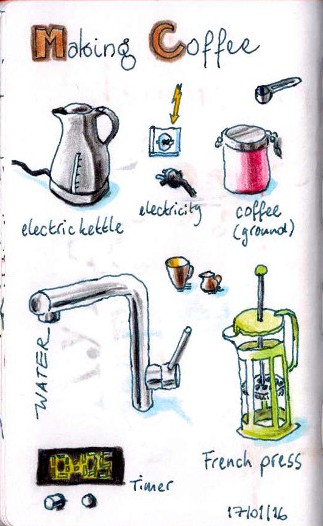 Making Coffee
electric kettle
electricity
coffee
(ground)
WATER
French press
Timer
17/01/16